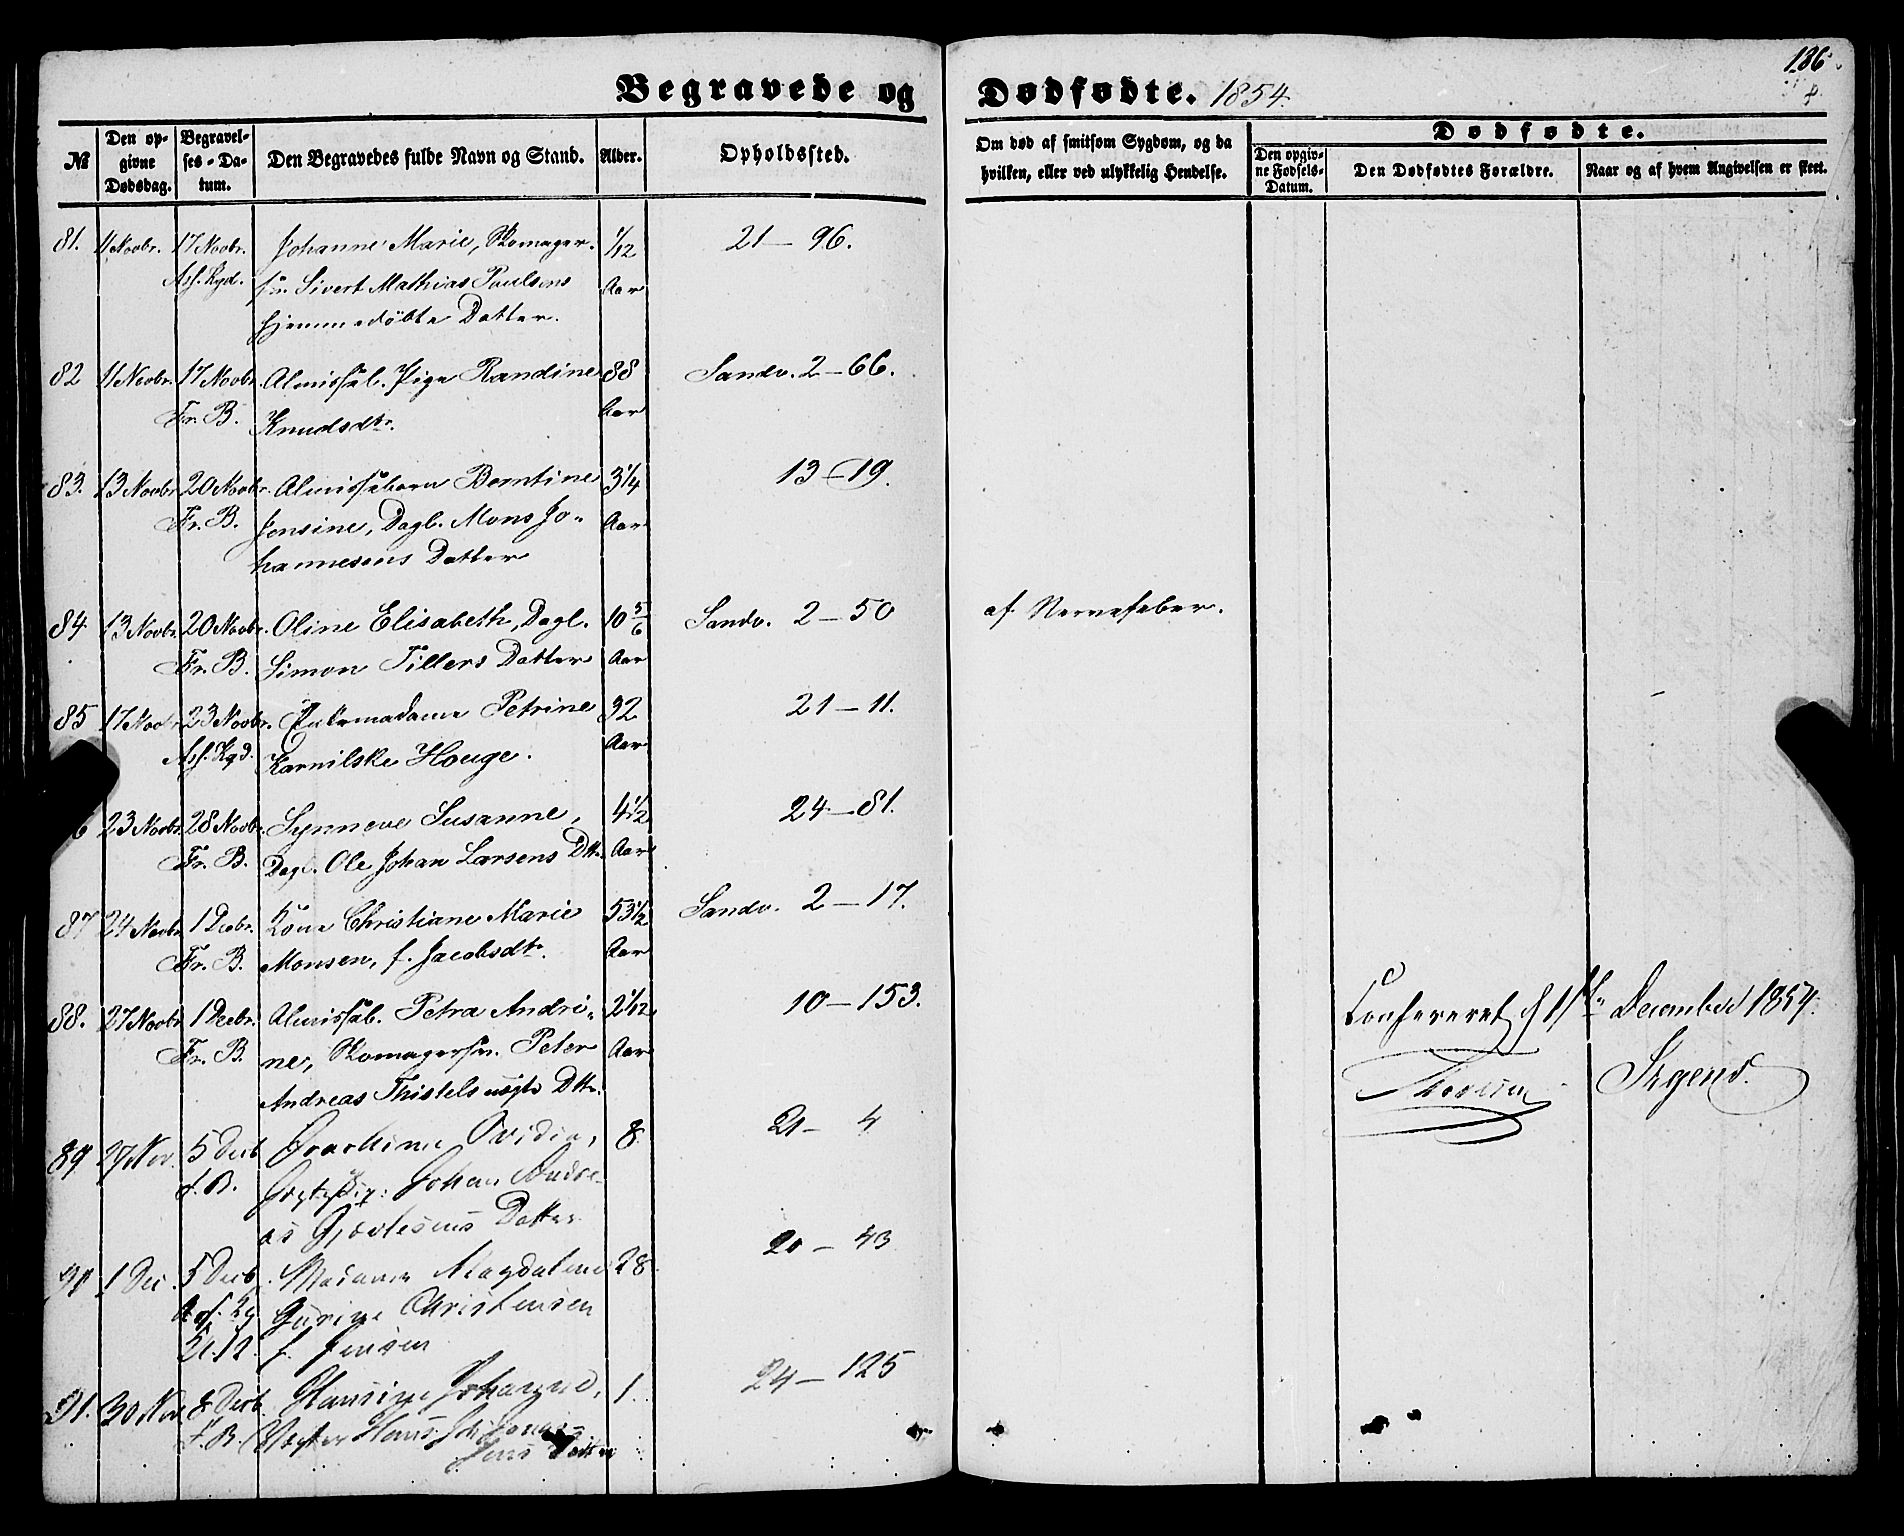 186
Begravede og Dødfødte. 1854.
№
Den opgivne Dødsdag.
Begravelses-Datum.
Den Begravedes fulde Navn og Stand.
Alder.
Opholdssted.
Om død af smitsom Sygdom, og da hvilken, eller ved ulykkelig Hendelse.
Dødfødte.
Den opgivne Fødsels-Datum.
Den Dødfødtes Forældre.
Naar og af hvem Angivelsen er skeet.
81. 11 Novbr. 17 Novbr. Johanne Marie, Skomager- 1/12 21 — 96.
Ass. Kgd. sv. Sivert Mathias Paulsens Aar
hjemmedøbte Datter.
82 11 Novbr. 17 Novbr. Almissel. Pige Randine 88 Sandv. 2 — 66.
Fr. B. Knudsdtr. Aar
83. 13 Novbr. 20 Novbr. Almissebarn Berntine 3 1/4 13 — 19.
Fr. B. Jensine, Dagl. Mons Jo- Aar
hannesens Datter
84 13 Novbr. 20 Novbr. Oline Elisabeth, Dagl. 10 5/6 Sandv. 2 — 50 af Nervefeber.
Fr. B. Simon Tillers Datter Aar
85 17 Novbr 23 Novbr. Enkemadame Petrine 32 21 — 11.
Ass. Kgd. Karnilske Houge. Aar
6 23 Novbr. 28 Novbr. Synneve Susanne, 4 1/2 24 — 81.
Fr. B. Dagl. Ole Johan Larsens Dtt. Aar
87 24 Novbr. 1 Decbr. Kone Christiane Marie 53 1/2 Sandv. 2 — 17.
Fr. B. Monsen, f. Jacobsdtr. Aar
88. 27 Novbr. 1 Decbr. Almissel. Petra Andri- 2 1/12 10 — 153.
Fr. B. ne, Skomagersv. Peter Aar
Andreas Thistels uægte Dtt.
Confereret d 1 December 1854.
Irgens.
89 27 Nov. 5 Decb Ovidia, 8. 21 — 4
f. B. Johan Andre-
as Datter
90 1 Dec. 5 Decb. Madame Magdalene 28 20 — 43
Ass. Kg Gurine Christensen
f. Jensen
91. 30 Nov 8 Decb. Hansine Johanne, 1. 24 — 125
F. B. Hans
Datter